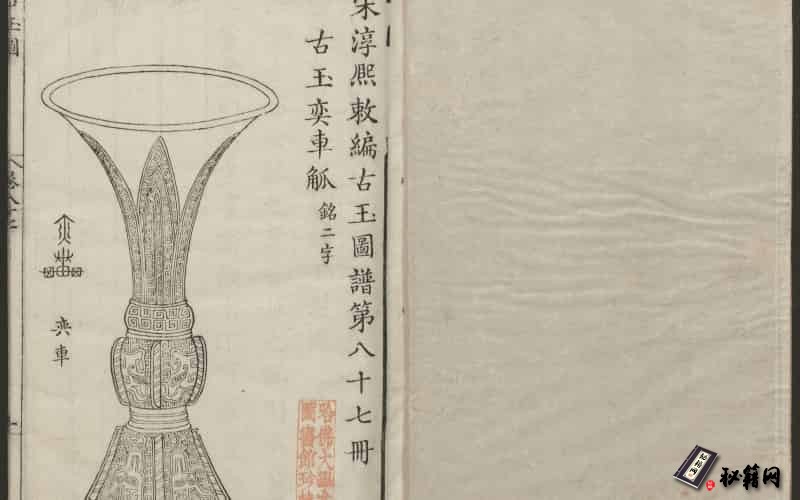 宋淳熙敕編古玉圖譜第八十七冊
古玉奕車觚 銘二字
奕車
哈佛大
圖書館珍
秘籍网